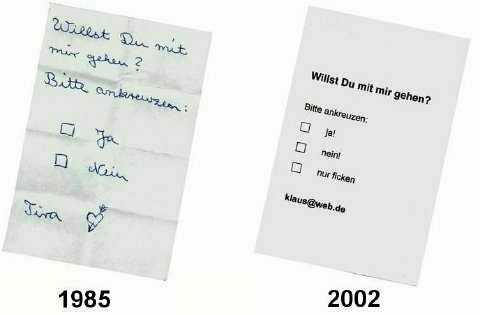 Willst Du mit
mir gehen?
Bitte ankreuzen:
Ja
Nein
Tina
1985
Willst Du mit mir gehen?
Bitte ankreuzen:
ja!
nein!
nur ficken
klaus@web.de
2002